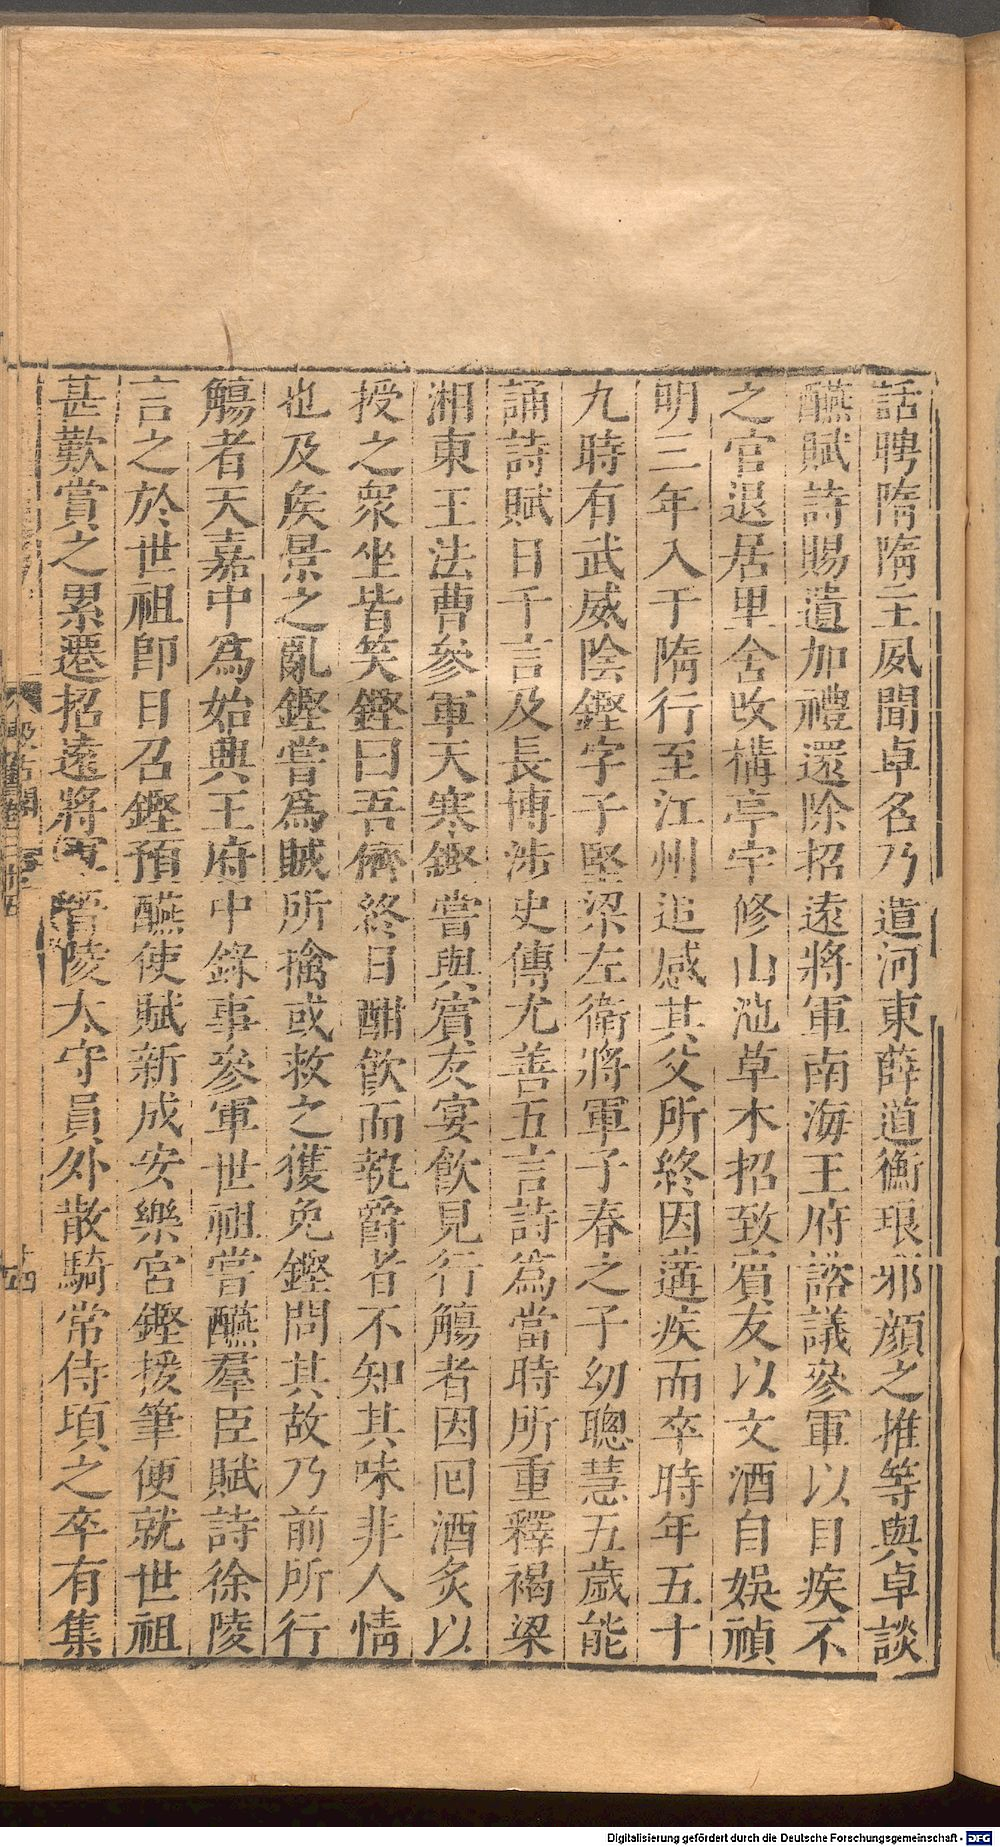 話聘隋隋主夙聞卓名乃遣河東薛道衡琅邪顔之推等與卓談
醼賦詩賜遺加禮還除招遠將軍南海王府諮議參軍以目疾不
之官退居里舍改構亭宇修山池草木招致賓友以文酒自娛禎
明三年入于隋行至江州追感其父所終因遘疾而卒時年五十
九時有武威陰鏗字子堅梁左衛將軍子春之子幼聰慧五歲能
誦詩賦日千言及長博涉史傳尤善五言詩爲當時所重釋褐梁
湘東王法曹參軍天寒鏗嘗與賓友宴飲見行觴者因回酒炙以
授之衆坐皆笑鏗曰吾儕終日酣飲而執爵者不知其味非人情
也及矦景之亂鏗嘗爲賊所擒或救之獲免鏗問其故乃前所行
觴者天嘉中爲始興王府中錄事參軍世祖嘗醼羣臣賦詩徐陵
言之於世祖卽日召鏗預醼使賦新成安樂宮鏗援筆便就世祖
甚歎賞之累遷招遠將軍晉陵太守員外散騎常侍頃之卒有集
Digitalisierung gefördert durch die Deutsche Forschungsgemeinschaft - DFG